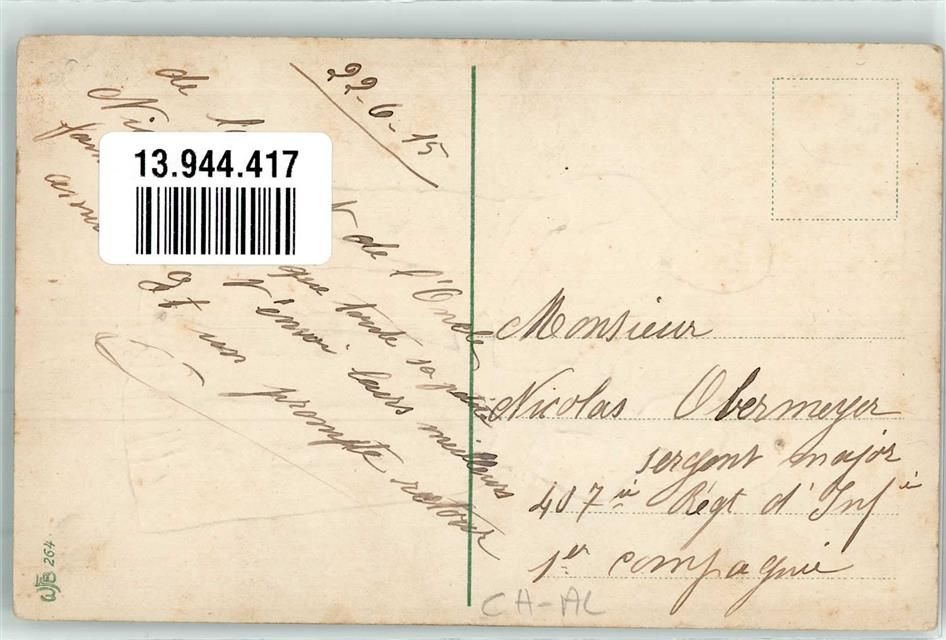 22-6-15
de
N de l'Oncle
que toute sa
t'envoi leurs meilleurs
Et un prompte retour
13.944.417
Monsieur
Nicolas Obermeyer
sergent major
407è Régt d'Infie
1er compagnie
WB 264
CH-AL